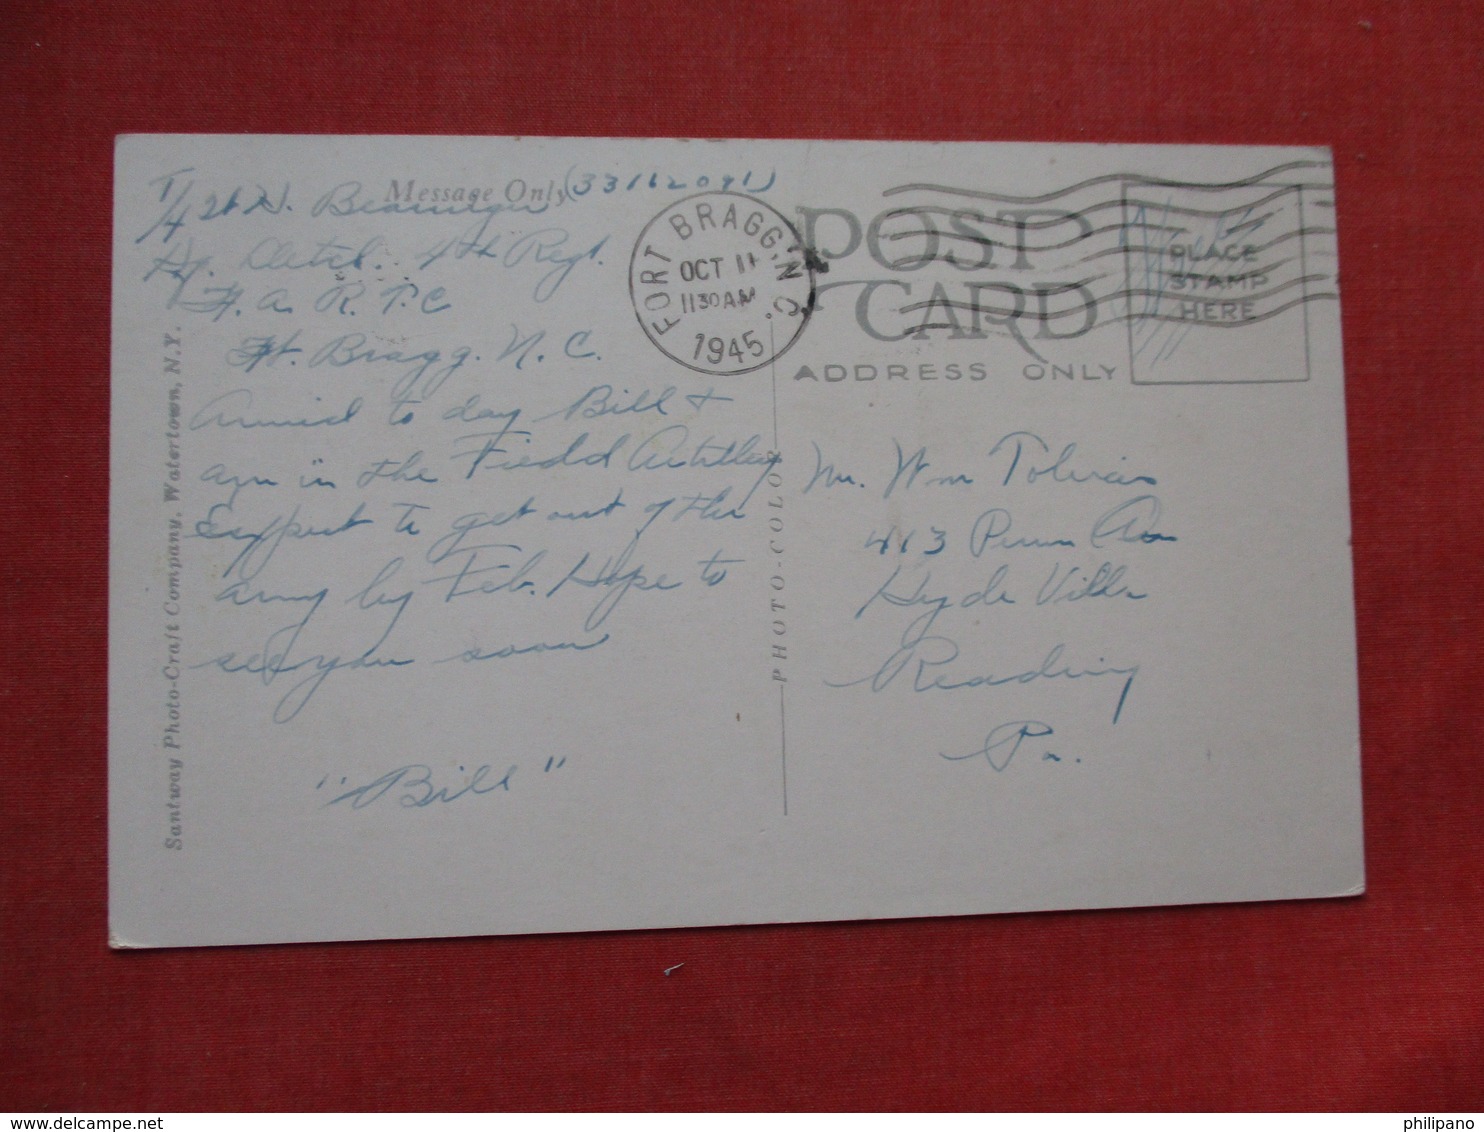 Message Only (33162091)
T/4
Hq. Detch. 4th Regt.
F. A. R. T. C
Ft. Bragg. N. C.
Arrived to day Bill &
am in the Field Artillery
Expect to get out of the
army by Feb. Hope to
see you soon
"Bill"
Santway Photo-Craft Company, Watertown, N.Y.
PHOTO-COLOR
FORT BRAGG, N.C.
OCT 11
1130 AM
1945
POST
CARD
ADDRESS ONLY
PLACE
STAMP
HERE
Mr. Wm
413 Penn Ave
Hyde Villa
Reading
Pa.
philipano